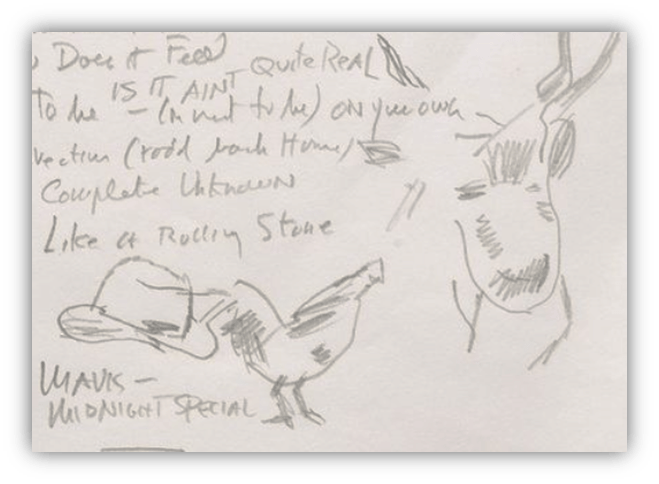 Does it Feel Quite Real
IS IT AINT
To be — (or not to be) ON your own
(road back Home)
Complete Unknown
Like a Rolling Stone
MAVIS —
MIDNIGHT SPECIAL